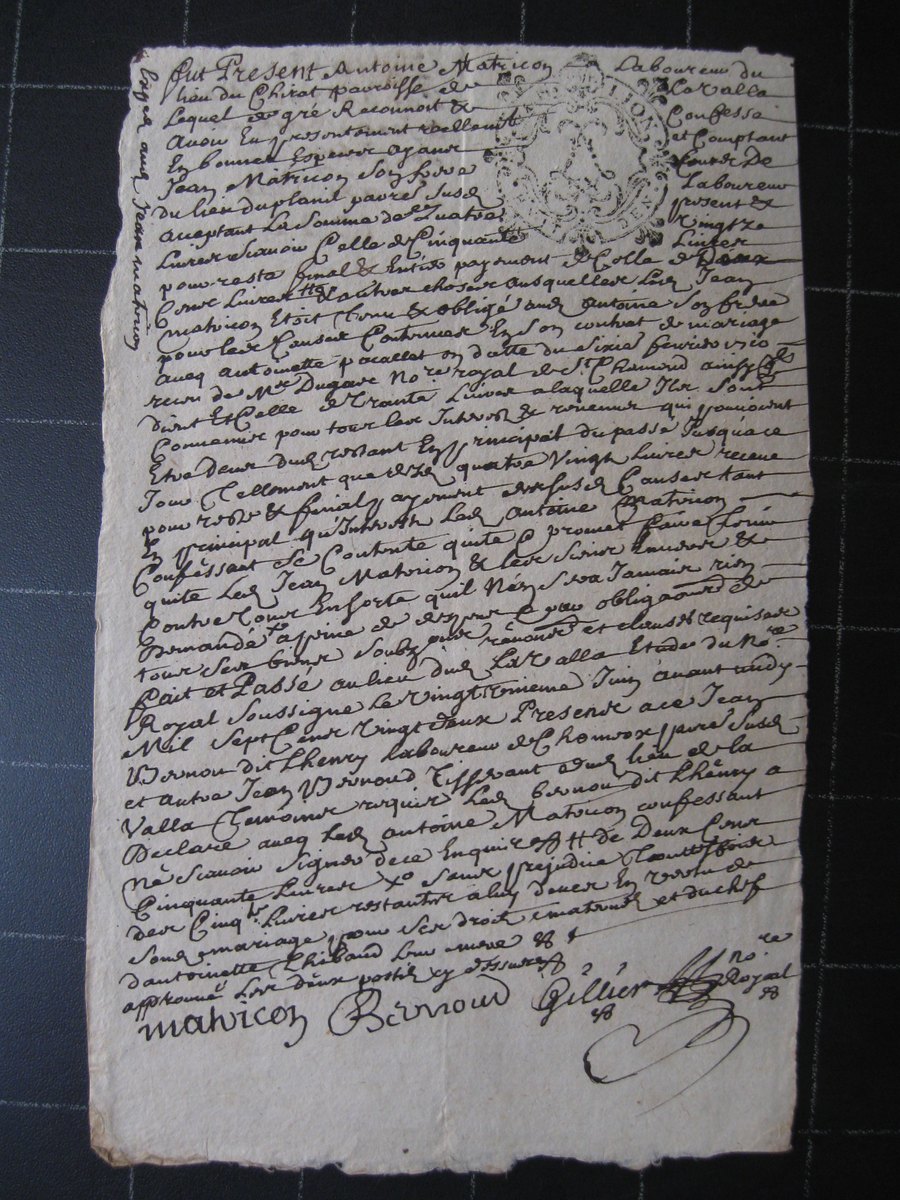 fut Present Antoine Matricon Laboureur du
lieu du Chirat parroisse de Lavalla
Lequel de gré Reconnoit & Confesse
Avoir Eu presentement reellemt et Comptant
En bonnes Especes ayant Cours De
Jean Matricon Son frere Laboureur
du lieu du planil parse Susd present &
aceptant La Somme de Quatre Vingtze
Livres Scavoir Celle de Cinquante Livres
pour reste final & Entier payement de Celle de Deux
Cens Livres & autres choses ausquelles Led Jean
matricon Etoit Tenu & obligé aud Antoine Son frere
pour les Causes Contenues En Son contrat de mariage
avec Antoinette pacallet en datte du Sixie fevrier 1710
receu de Mre Dugare Nore royal de St Chamond ainsy
disent Et Celle de Trante Livres a laquelle Ils Sont
Convenus pour tous les Interest & revenus qui pouvoient
Etre Deus dud restant En principal du passé Jusqua ce
Jour Tellement que desd quatre Vingt Livres receue
pour reste & final payement des Susd Causes tant
En principal qu'Interests Led Antoine Matricon
Confessant Se Contente quite & promet faire Tenir
quite Led Jean Matricon & les Siens Envers &
Contre Tous Ensorte quil N'en Sera Jamais rien
Demandé a peine de despens & par obligaon de
tous Ses biens Soubz renoncé et clauses requises
fait et Passé au lieu dud Lavalla Etude du Nore
Royal Soussigné Le Vingt Troisieme Juin avant midy
Mil Sept Cens Vingt deux Presens a ce Jean
Bernou dit Lhenry Laboureur de Chomiox parse Susd
et autre Jean Bernoud Tisserant dud lieu de la
Valla Temoins requis Led bernou dit Lhenry a
Declaré avec Led antoine Matricon confessant
Né Scavoir Signer de ce Enquis de Deux Cens
Cinquante Livres Sans prejudice Touttesfois
des Cinq Livres restantes a luy deues En vertu de
Sond mariage pour Ses droits maternels et du chef
d'antoinette Thibaud leur mere
approuvé Les deux postil cy dessures
matricon Bernoud Gillier nore Royal
avec Jean matricon